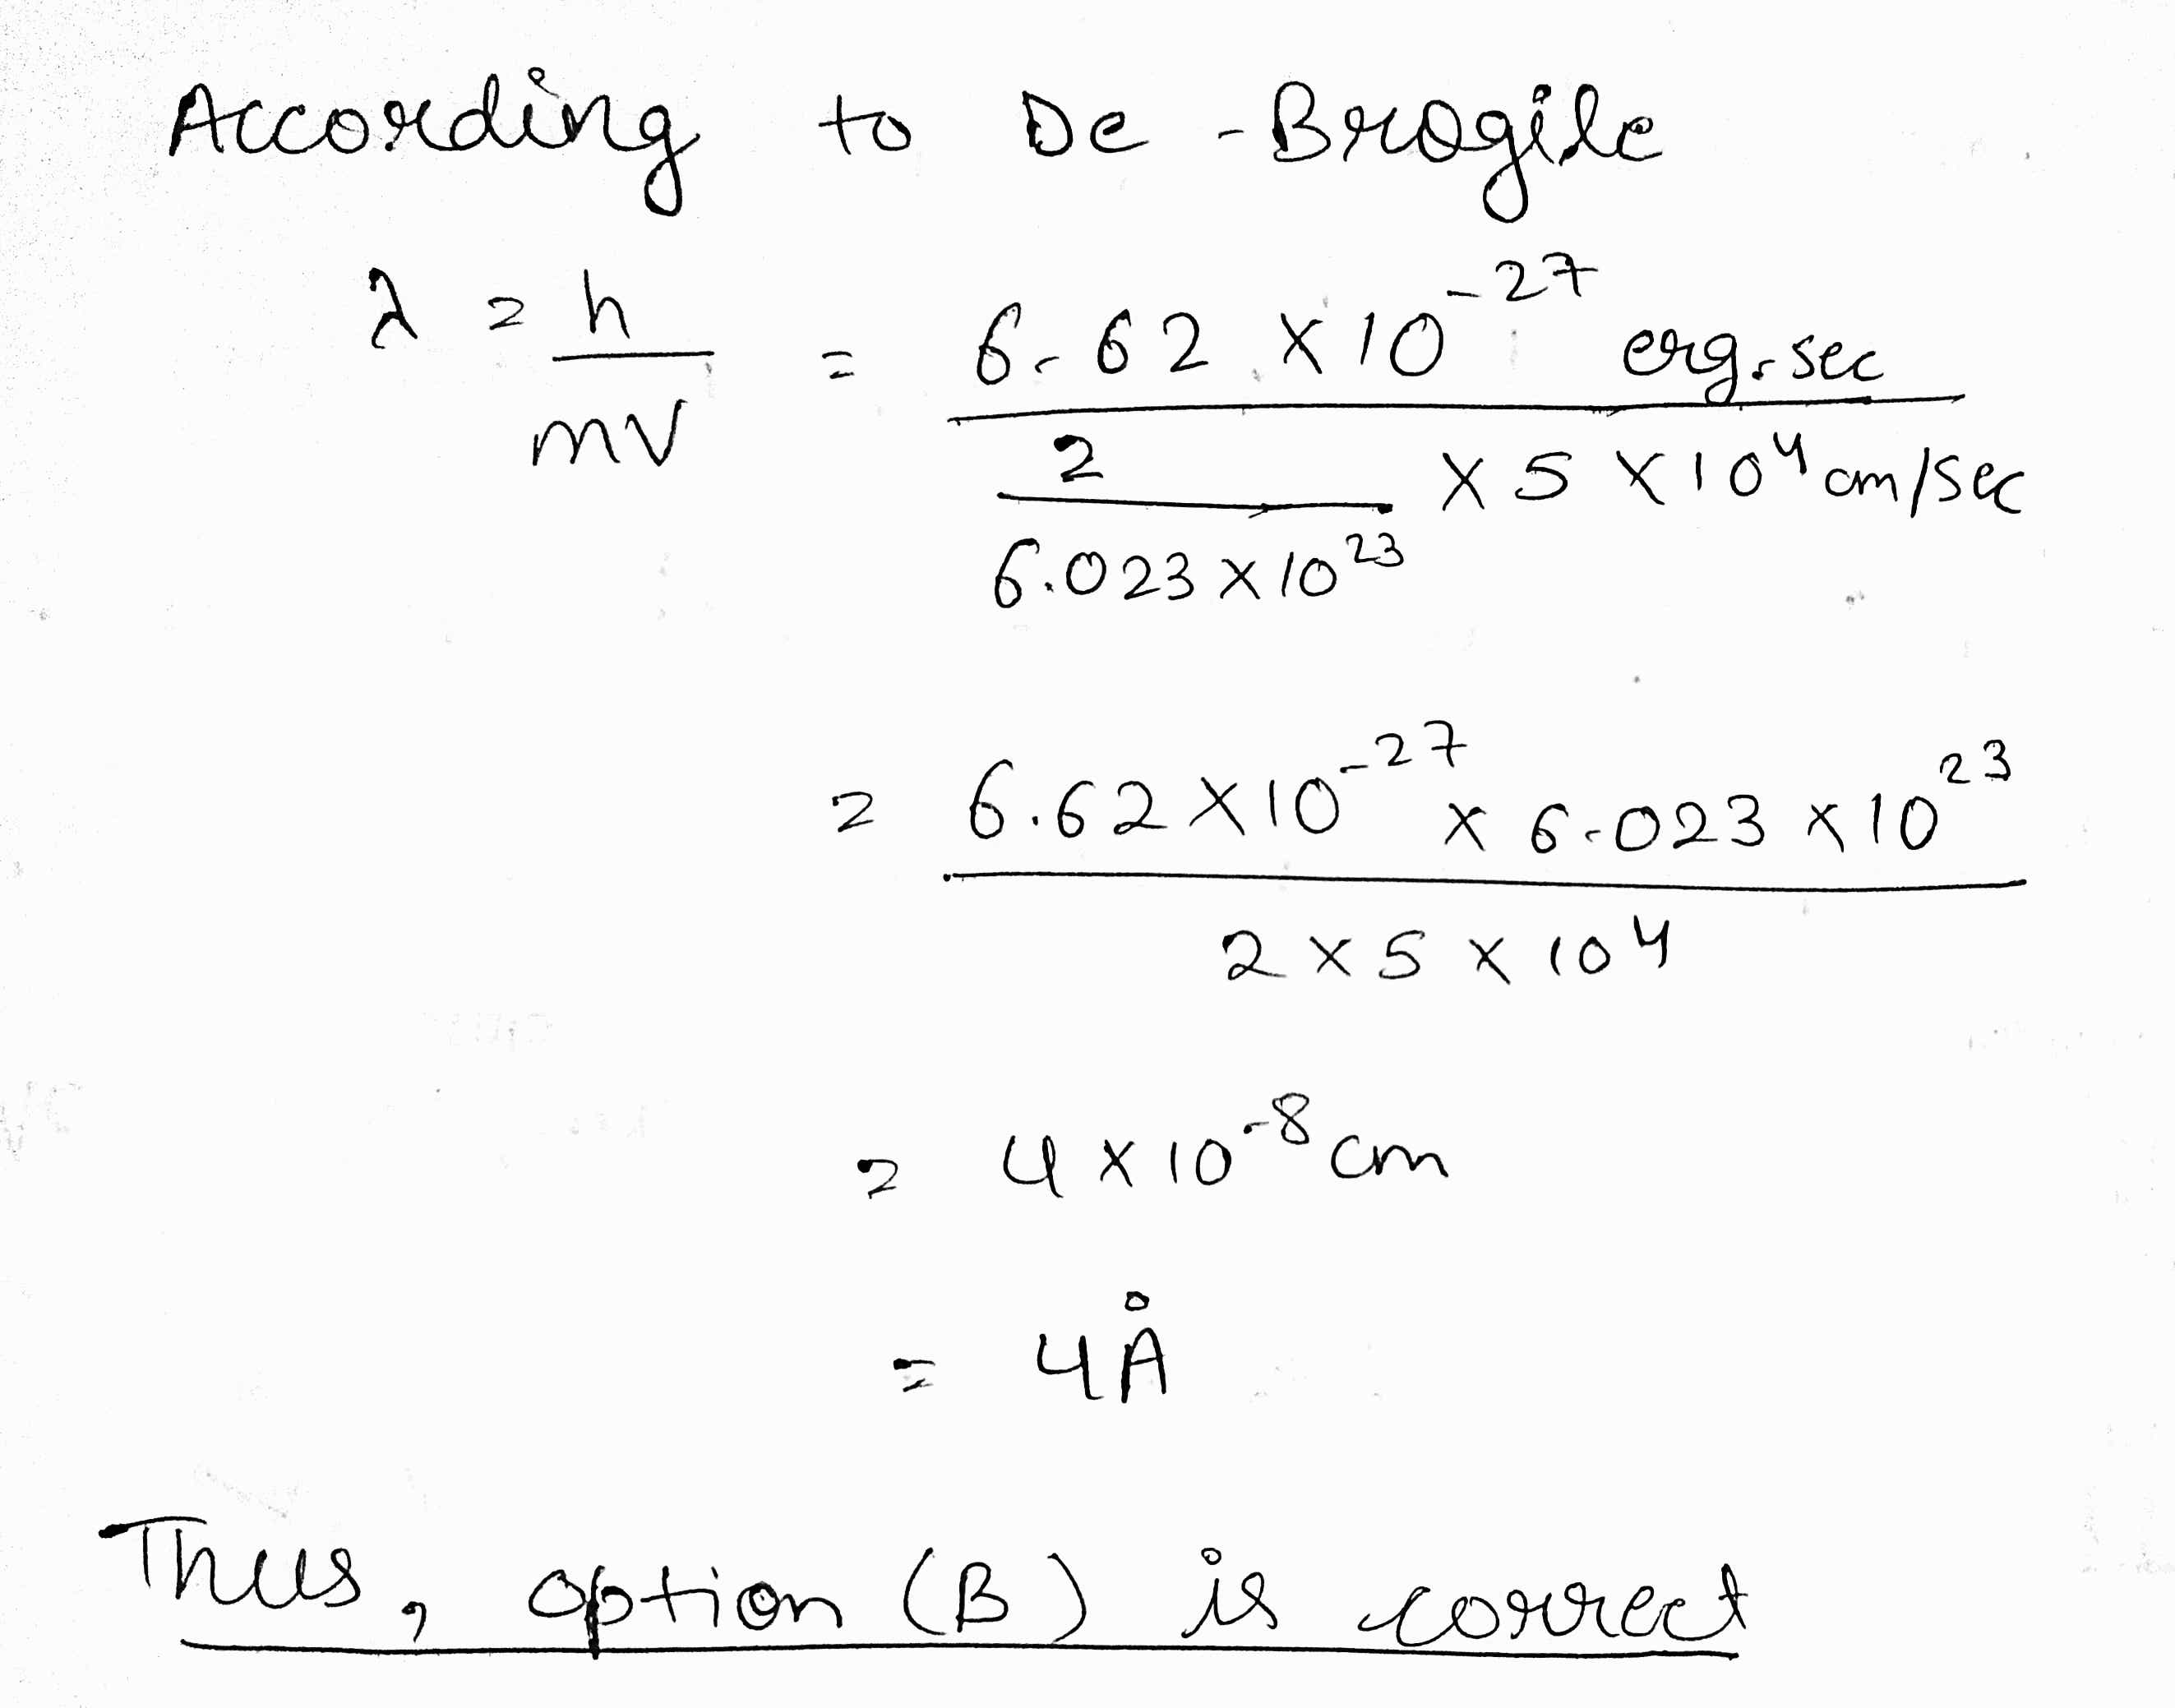 According to De-Brogile
λ = h/mv = 6.62 × 10^-27 erg.sec / (2/(6.023 × 10^23) × 5 × 10^4 cm/sec)
= 6.62 × 10^-27 × 6.023 × 10^23 / (2 × 5 × 10^4)
= 4 × 10^-8 cm
= 4Å
Thus, option (B) is correct